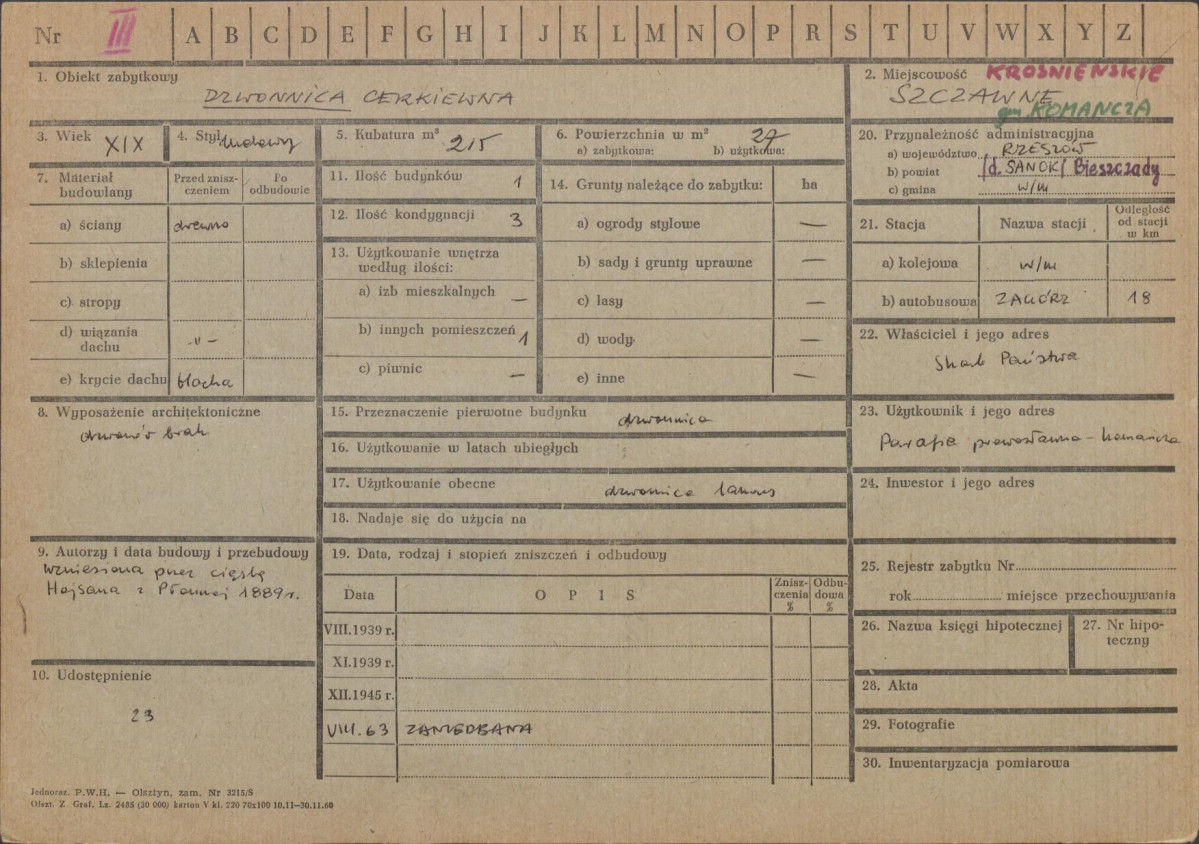 Nr III A B C D E F G H I J K L M N O P R S T U V W X Y Z
1. Obiekt zabytkowy
DZWONNICA CERKIEWNA
2. Miejscowość KROŚNIEŃSKIE
SZCZAWNE
gm. KOMAŃCZA
3. Wiek XIX
4. Styl ludowy
5. Kubatura m³ 215
6. Powierzchnia w m² 27
a) zabytkowa: b) użytkowa:
7. Materiał budowlany
Przed zniszczeniem
Po odbudowie
a) ściany drewno
b) sklepienia
c) stropy
d) wiązania dachu -"-
e) krycie dachu blacha
8. Wyposażenie architektoniczne
dzwonów brak
9. Autorzy i data budowy i przebudowy
Wzniesiona przez cieślę
Hojsana z Płonnej 1889 r.
10. Udostępnienie
23
11. Ilość budynków 1
12. Ilość kondygnacji 3
13. Użytkowanie wnętrza
według ilości:
a) izb mieszkalnych —
b) innych pomieszczeń 1
c) piwnic —
14. Grunty należące do zabytku: ha
a) ogrody stylowe —
b) sady i grunty uprawne —
c) lasy —
d) wody —
e) inne —
15. Przeznaczenie pierwotne budynku dzwonnica
16. Użytkowanie w latach ubiegłych
17. Użytkowanie obecne dzwonnica
18. Nadaje się do użycia na
19. Data, rodzaj i stopień zniszczeń i odbudowy
Data O P I S Zniszczenia % Odbudowa %
VIII.1939 r.
XI.1939 r.
XII.1945 r.
VIII.63 ZANIEDBANA
20. Przynależność administracyjna
a) województwo RZESZÓW
b) powiat /d. SANOK/ Bieszczady
c) gmina w/m
21. Stacja Nazwa stacji Odległość od stacji w km
a) kolejowa w/m
b) autobusowa ZAGÓRZ 18
22. Właściciel i jego adres
Skarb Państwa
23. Użytkownik i jego adres
Parafia prawosławna - Komańcza
24. Inwestor i jego adres
25. Rejestr zabytku Nr
rok miejsce przechowywania
26. Nazwa księgi hipotecznej
27. Nr hipoteczny
28. Akta
29. Fotografie
30. Inwentaryzacja pomiarowa
Jednoraz. P.W.H. — Olsztyn, zam. Nr 3215/S
Olszt. Z Graf. Lz. 2485 (30 000) karton V kl. 220 70x100 10.11—30.11.60